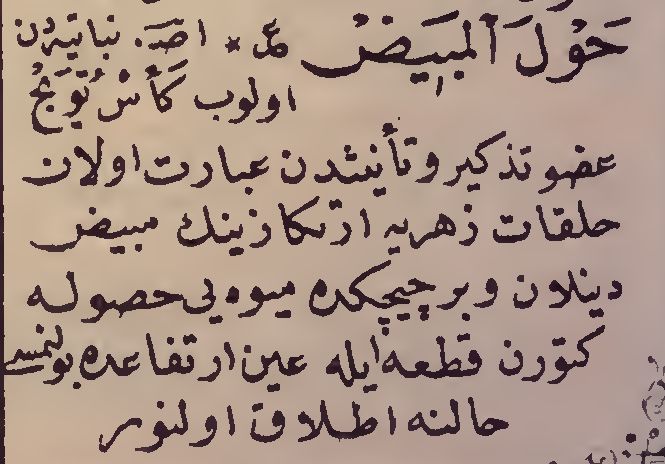 حَوْلَ ٱلْمَبِيَضْ عر * اصـ . نباتیه‌دن
اولوب كَأْسْ تُوَيْجْ
عضو تذكير و تأنيثدن عبارت اولان
حلقات زهريه ارتكازينك مبيض
دينلان و بر چيچكده ميوه‌يی حصوله
كتورن قطعه ايله عين ارتفاعده بولنمسی
حالنه اطلاق اولنور